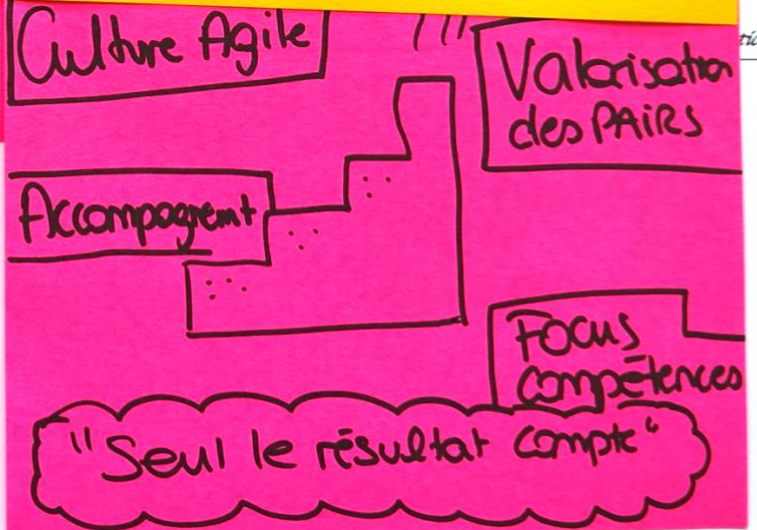 Culture Agile
Valorisation
des PAIRS
Accompagnemt
Focus
compétences
"Seul le résultat compte"